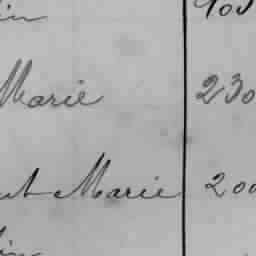 in 105
Marie 230
ut Marie 200
in